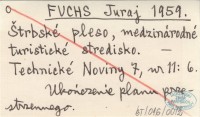 FUCHS Juraj 1959.
Štrbské pleso, medzinárodné
turistické stredisko. —
Technické Noviny 7, nr 11: 6.
Ukończenie planu prze-
strzennego.